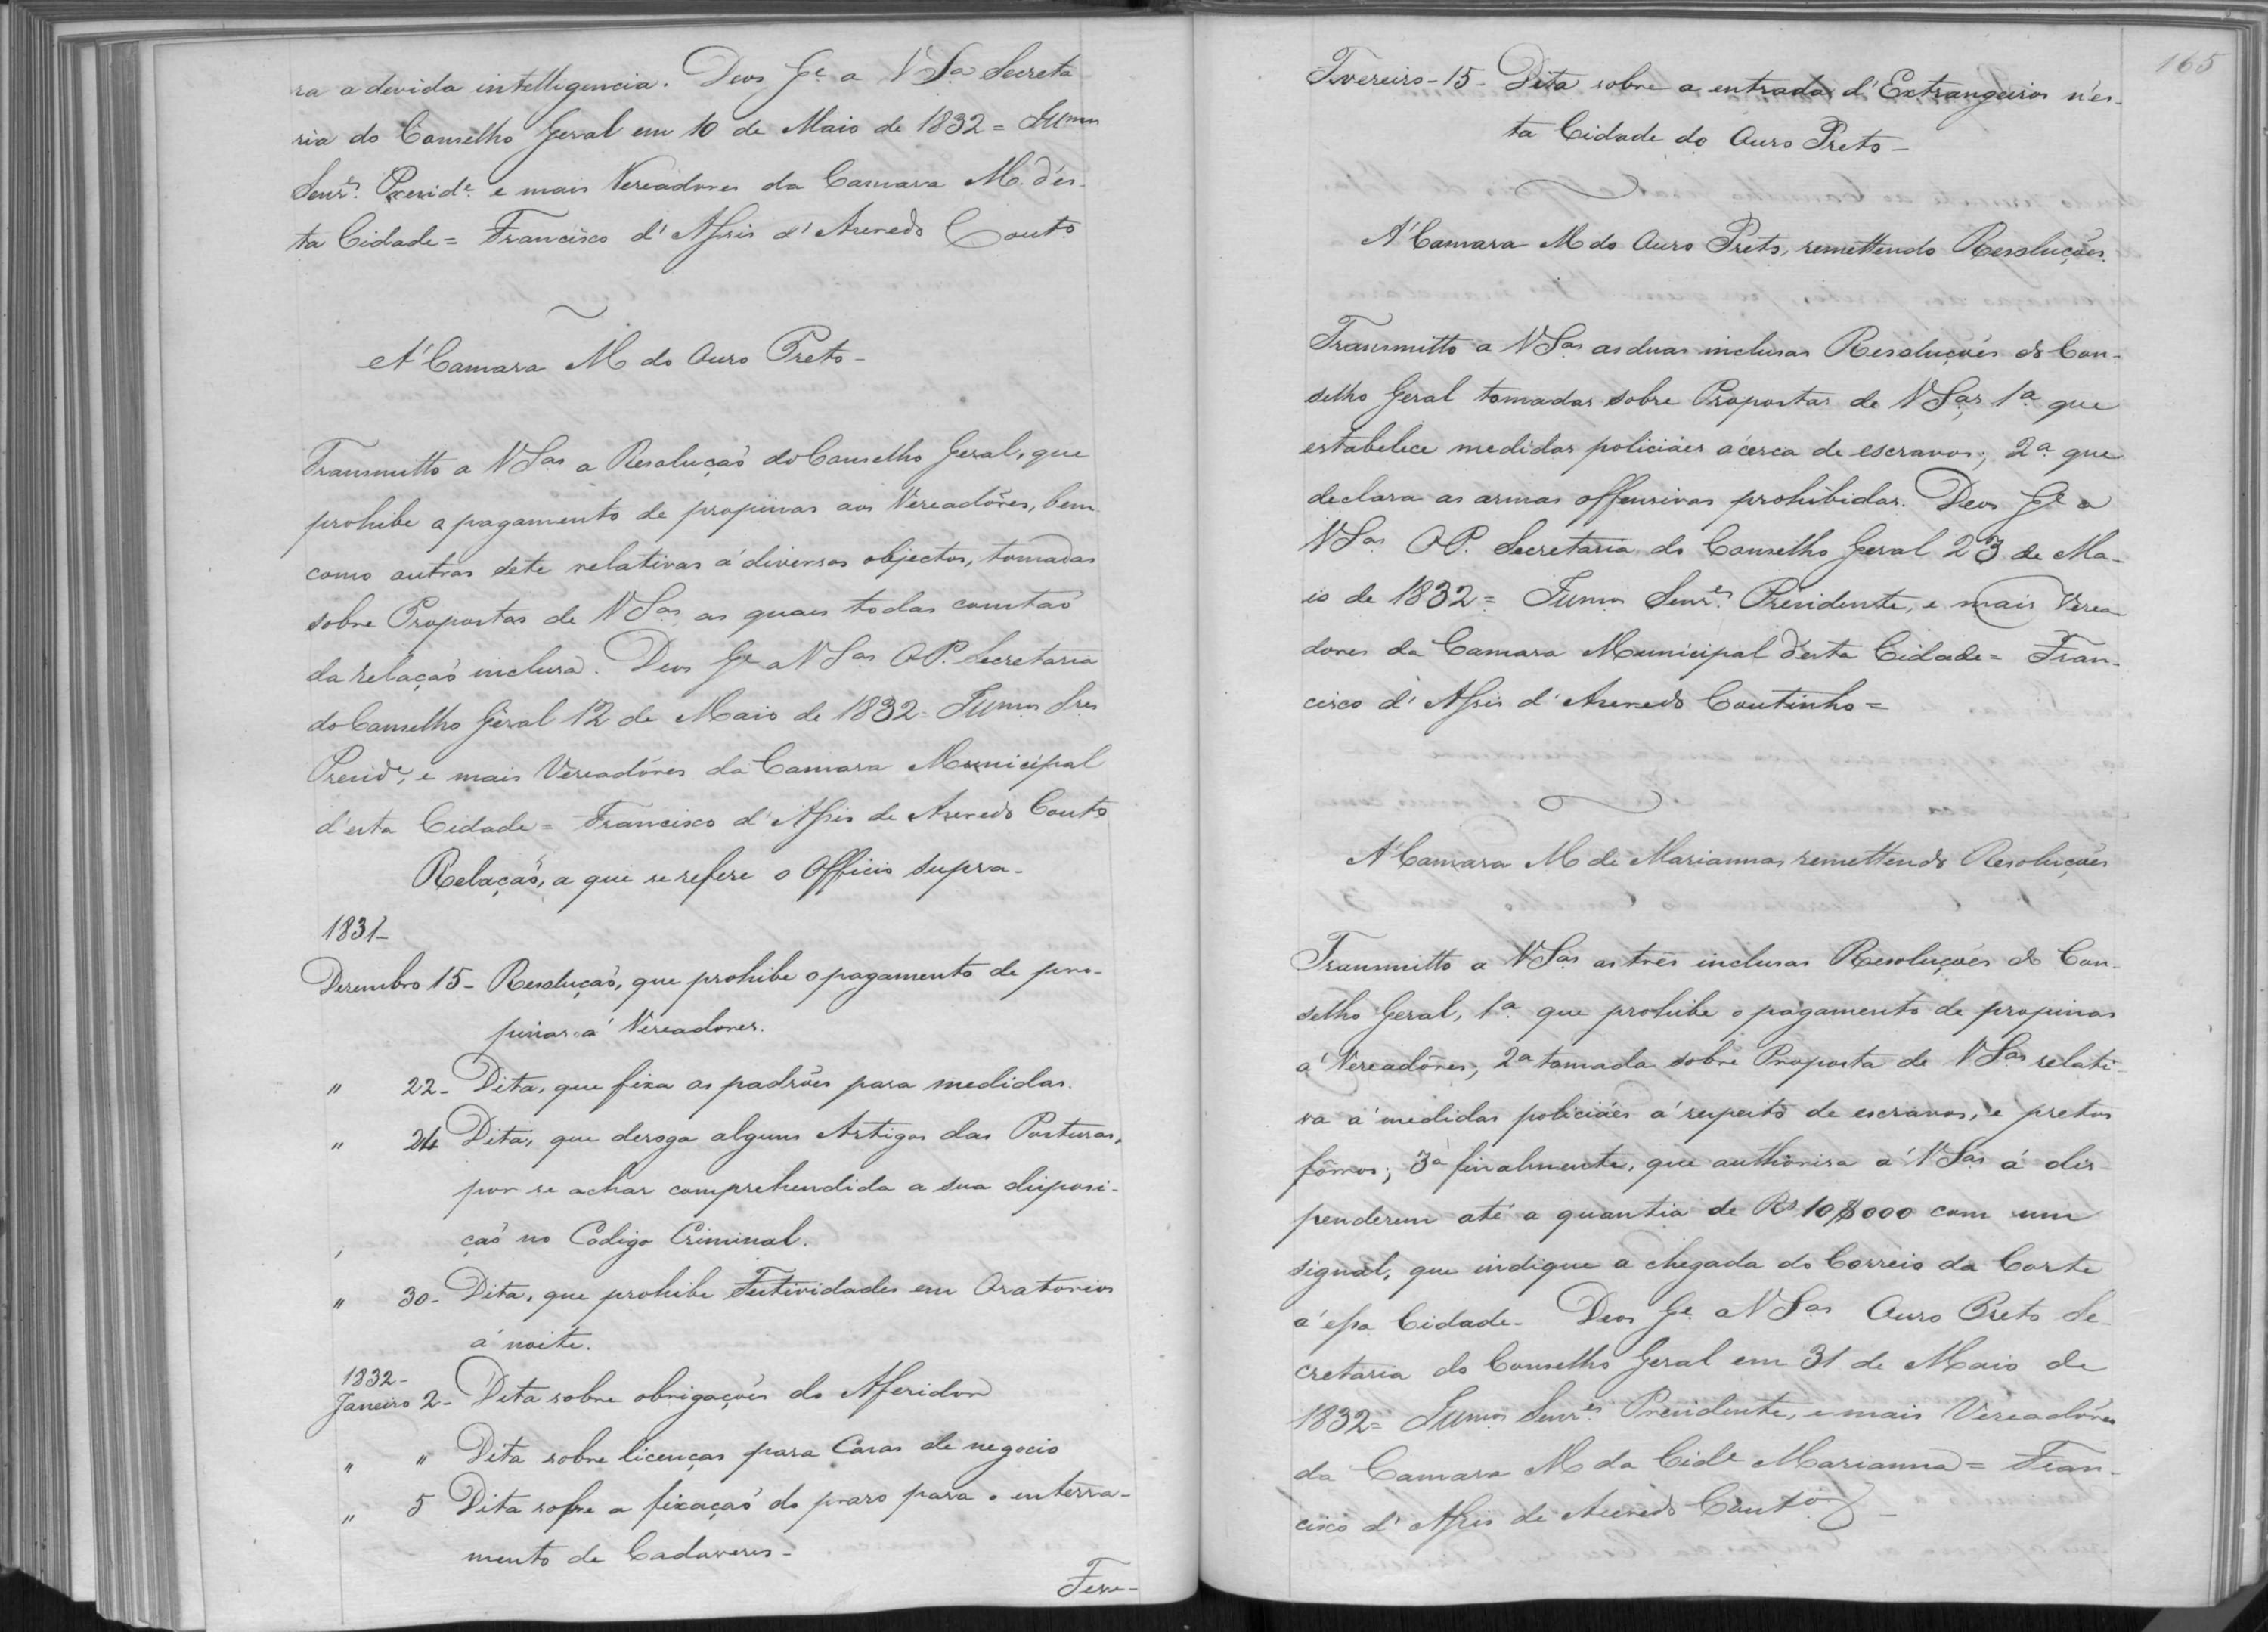 ra a devida intelligencia. Deos Ge a V Sa Secreta
ria do Conselho Geral em 10 de Maio de 1832 = Illmos
Senres Preside e mais Vereadores da Camara M. d'es-
ta Cidade = Francisco d'Assis d'Azeredo Couto
A' Camara M do Ouro Preto-
Transmitto a V Sas a Resoluçaõ do Conselho Geral, que
prohibe o pagamento de propinas aos Vereadôres, bem
como outras sete relativas á diversos objectos, tomadas
sobre Propostas de V Sas as quaes todas constaõ
da relaçaõ inclusa. Deos Ge a V Sas O P. Secretaria
do Conselho Geral 12 de Maio de 1832 = Illmos Sres
Preside, e mais Vereadôres da Camara Municipal
d'esta Cidade = Francisco d'Assis de Azeredo Couto
Relaçaõ, a que se refere o Officio supra-
1831-
Dezembro 15- Resoluçaõ, que prohibe o pagamento de pro-
pinas á Vereadores.
" 22- Dita, que fixa os padrões para medidas.
" 24 Dita, que deroga alguns Artigos das Posturas,
por se achar comprehendida a sua disposi-
çaõ no Codigo Criminal.
" 30- Dita, que prohibe Festividades em Oratorios
á noite.
1832-
Janeiro 2- Dita sobre obrigações do Aferidor
" " Dita sobre licenças para Casas de negocio
" 5 Dita sobre a fixaçaõ do prazo para o enterra-
mento de Cadaveres-
Feve-
165
Fevereiro-15- Dita sobre a entrada d'Extrangeiros n'es-
ta Cidade do Ouro Preto-
A' Camara M do Ouro Preto, remettendo Resoluções.
Transmitto a V Sas as duas inclusas Resoluções do Con-
selho Geral tomadas sobre Propostas de V Sas, 1a que
estabelece medidas policiáes ácerca de escravos; 2a que
declara as armas offensivas prohibidas. Deos Ge a
V Sas O P. Secretaria do Conselho Geral 23 de Ma-
io de 1832 = Illmos Senres Presidente, e mais Verea
dores da Camara Municipal d'esta Cidade = Fran-
cisco d'Assis d'Azeredo Coutinho =
A' Camara M de Marianna remettendo Resoluções
Transmitto a V Sas as tres inclusas Resoluções do Con-
selho Geral, 1a que prohibe o pagamento de propinas
á Vereadôres; 2a tomada sobre Proposta de V Sas relati-
va á medidas policiáes á respeito de escravos, e pretos
fôrros; 3a finalmente, que authorisa á V Sas á dis-
penderem até a quantia de Rs 10$000 com um
signal, que indique a chegada do Correio da Corte
á essa Cidade- Deos Ge a V Sas Ouro Preto Se-
cretaria do Conselho Geral em 31 de Maio de
1832 = Illmos Senres Presidente, e mais Vereadôres
da Camara M da Cide Marianna = Fran-
cisco d'Assis de Azeredo Couto-